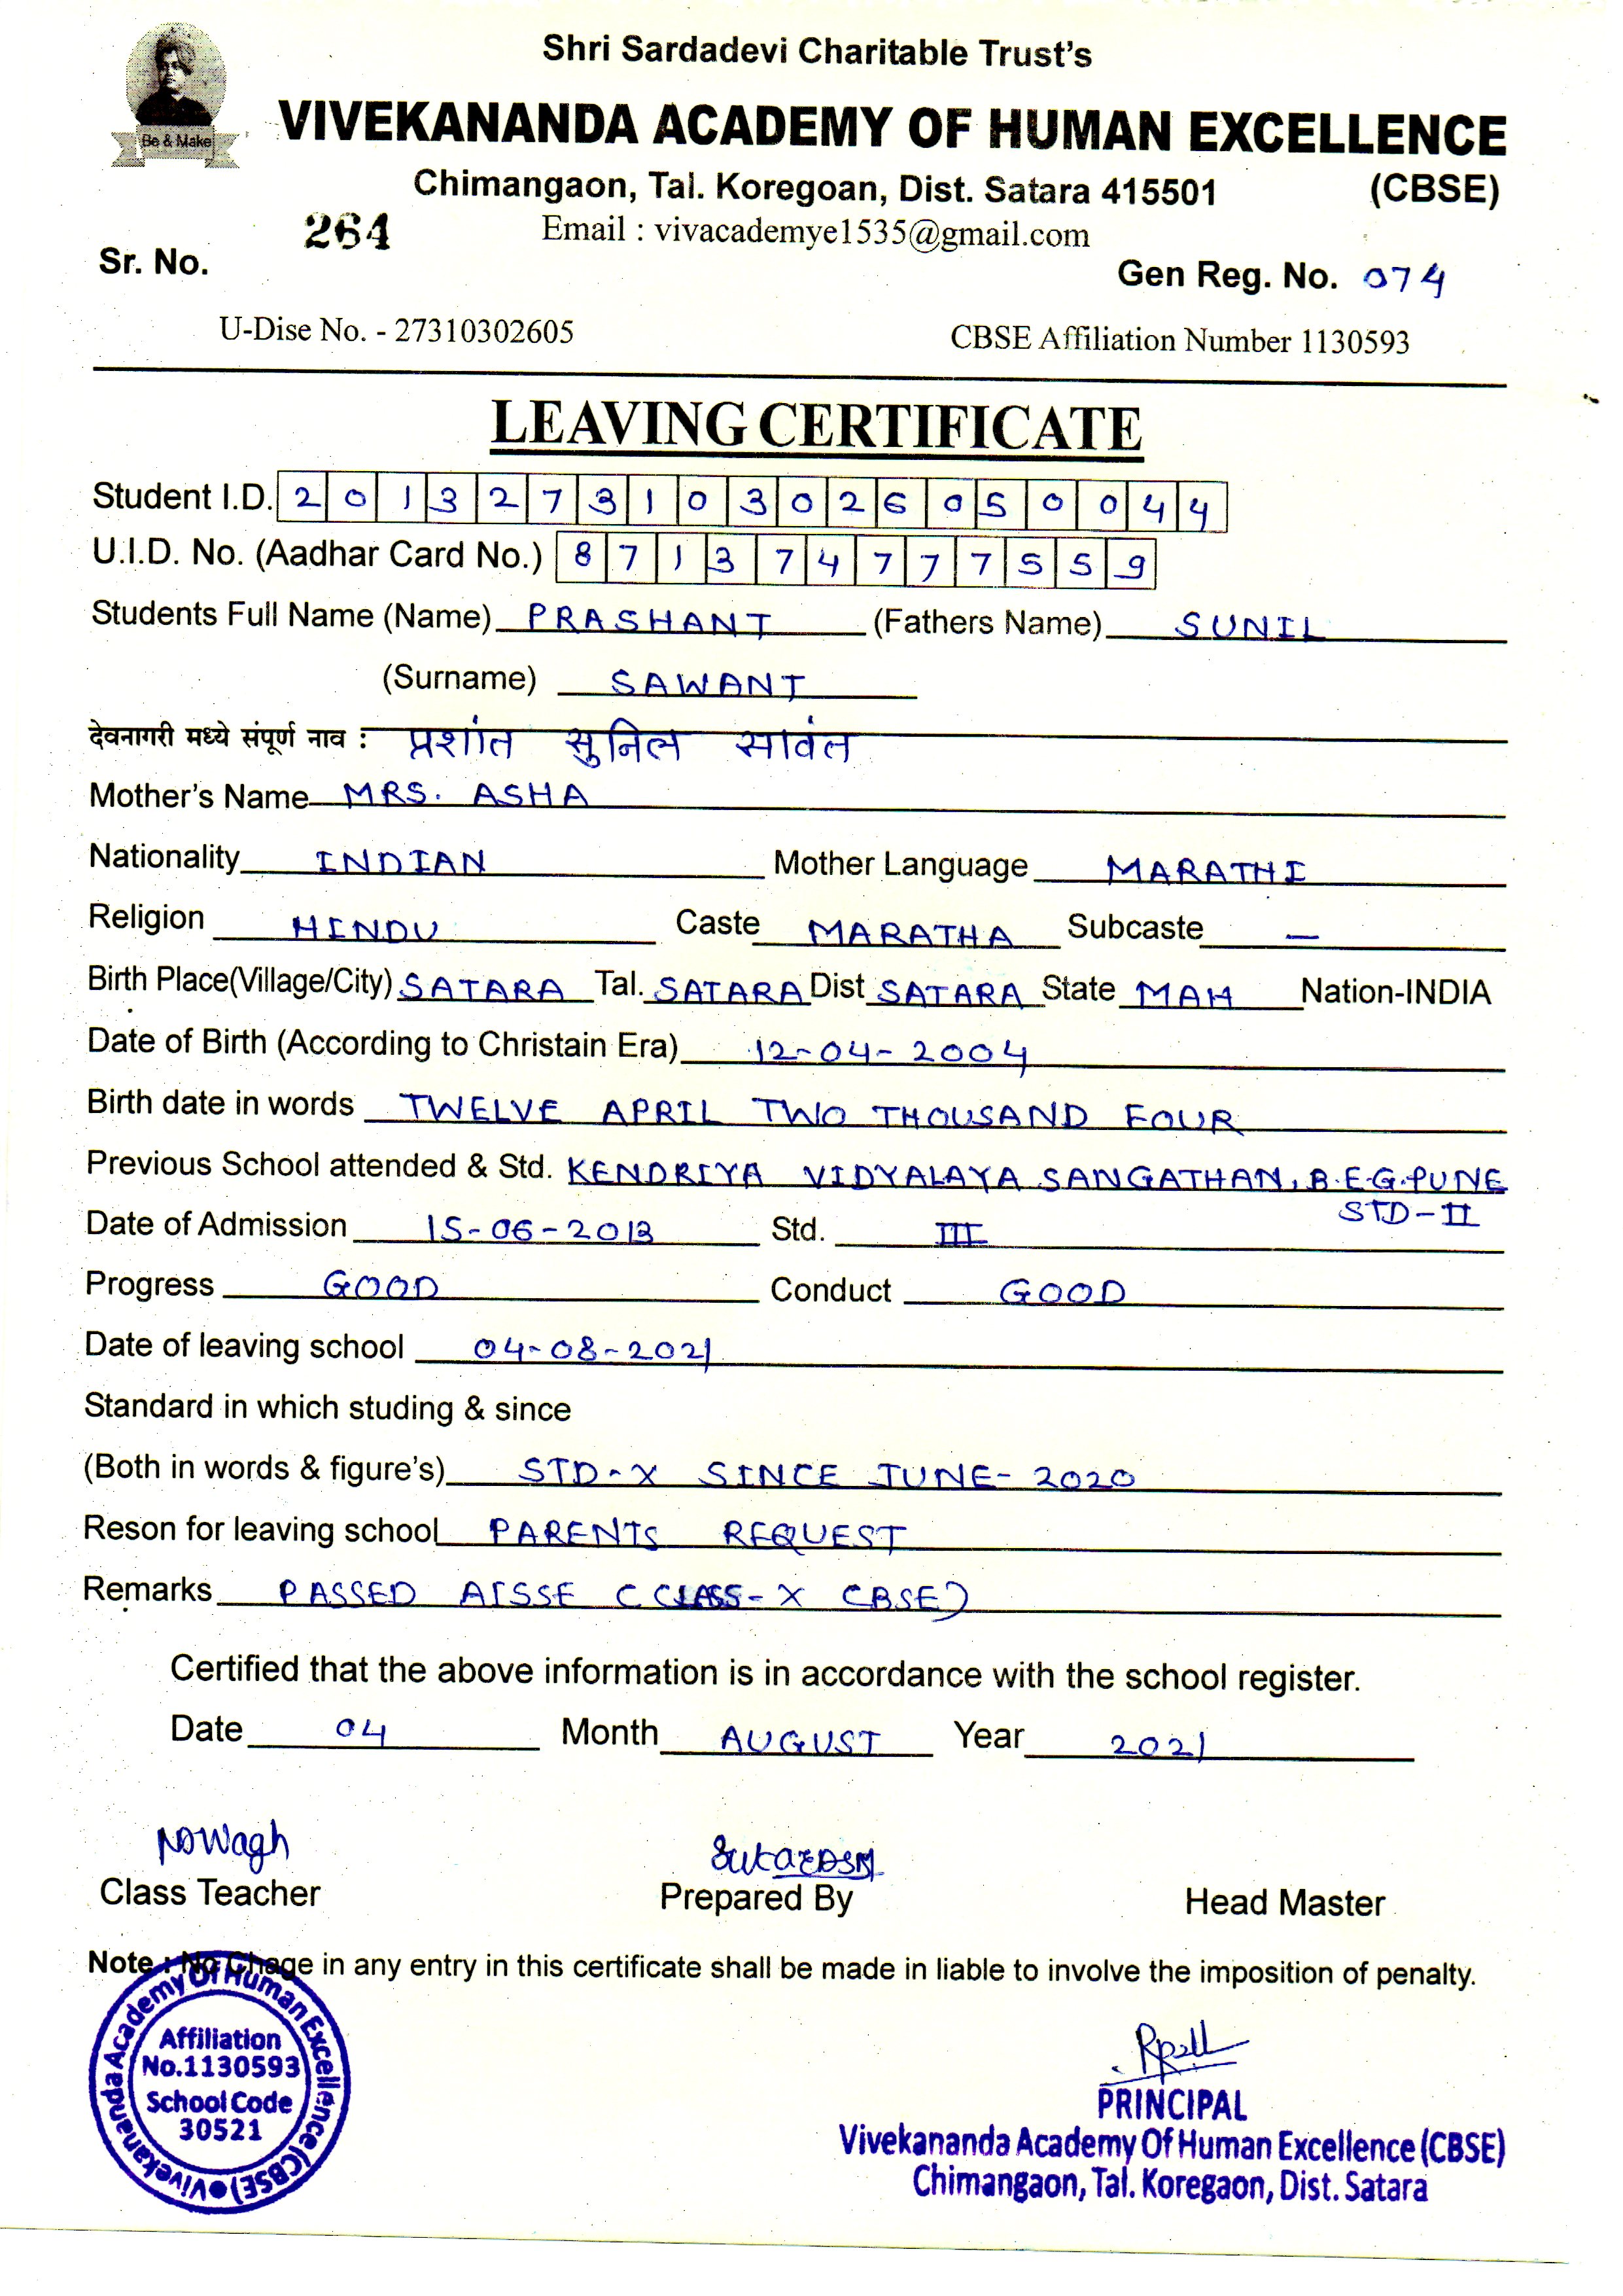 Shri Sardadevi Charitable Trust's
Be & Make
VIVEKANANDA ACADEMY OF HUMAN EXCELLENCE
Chimangaon, Tal. Koregoan, Dist. Satara 415501 (CBSE)
264 Email : vivacademye1535@gmail.com
Sr. No. Gen Reg. No. 074
U-Dise No. - 27310302605 CBSE Affiliation Number 1130593
LEAVING CERTIFICATE
Student I.D. 2 0 1 3 2 7 3 1 0 3 0 2 6 0 5 0 0 4 4
U.I.D. No. (Aadhar Card No.) 8 7 1 3 7 4 7 7 7 5 5 9
Students Full Name (Name) PRASHANT (Fathers Name) SUNIL
(Surname) SAWANT
देवनागरी मध्ये संपूर्ण नाव : प्रशांत सुनिल सावंत
Mother's Name MRS. ASHA
Nationality INDIAN Mother Language MARATHI
Religion HINDU Caste MARATHA Subcaste —
Birth Place(Village/City) SATARA Tal. SATARA Dist SATARA State MAH Nation-INDIA
Date of Birth (According to Christain Era) 12-04-2004
Birth date in words TWELVE APRIL TWO THOUSAND FOUR
Previous School attended & Std. KENDRIYA VIDYALAYA SANGATHAN, B.E.G. PUNE
STD-II
Date of Admission 15-06-2013 Std. III
Progress GOOD Conduct GOOD
Date of leaving school 04-08-2021
Standard in which studing & since
(Both in words & figure's) STD-X SINCE JUNE-2020
Reson for leaving school PARENTS REQUEST
Remarks PASSED AISSE (CLASS-X CBSE)
Certified that the above information is in accordance with the school register.
Date 04 Month AUGUST Year 2021
Class Teacher Prepared By Head Master
Note : No Chage in any entry in this certificate shall be made in liable to involve the imposition of penalty.
Vivekananda Academy Of Human Excellence (CBSE)
Affiliation
No.1130593
School Code
30521
PRINCIPAL
Vivekananda Academy Of Human Excellence (CBSE)
Chimangaon, Tal. Koregaon, Dist. Satara